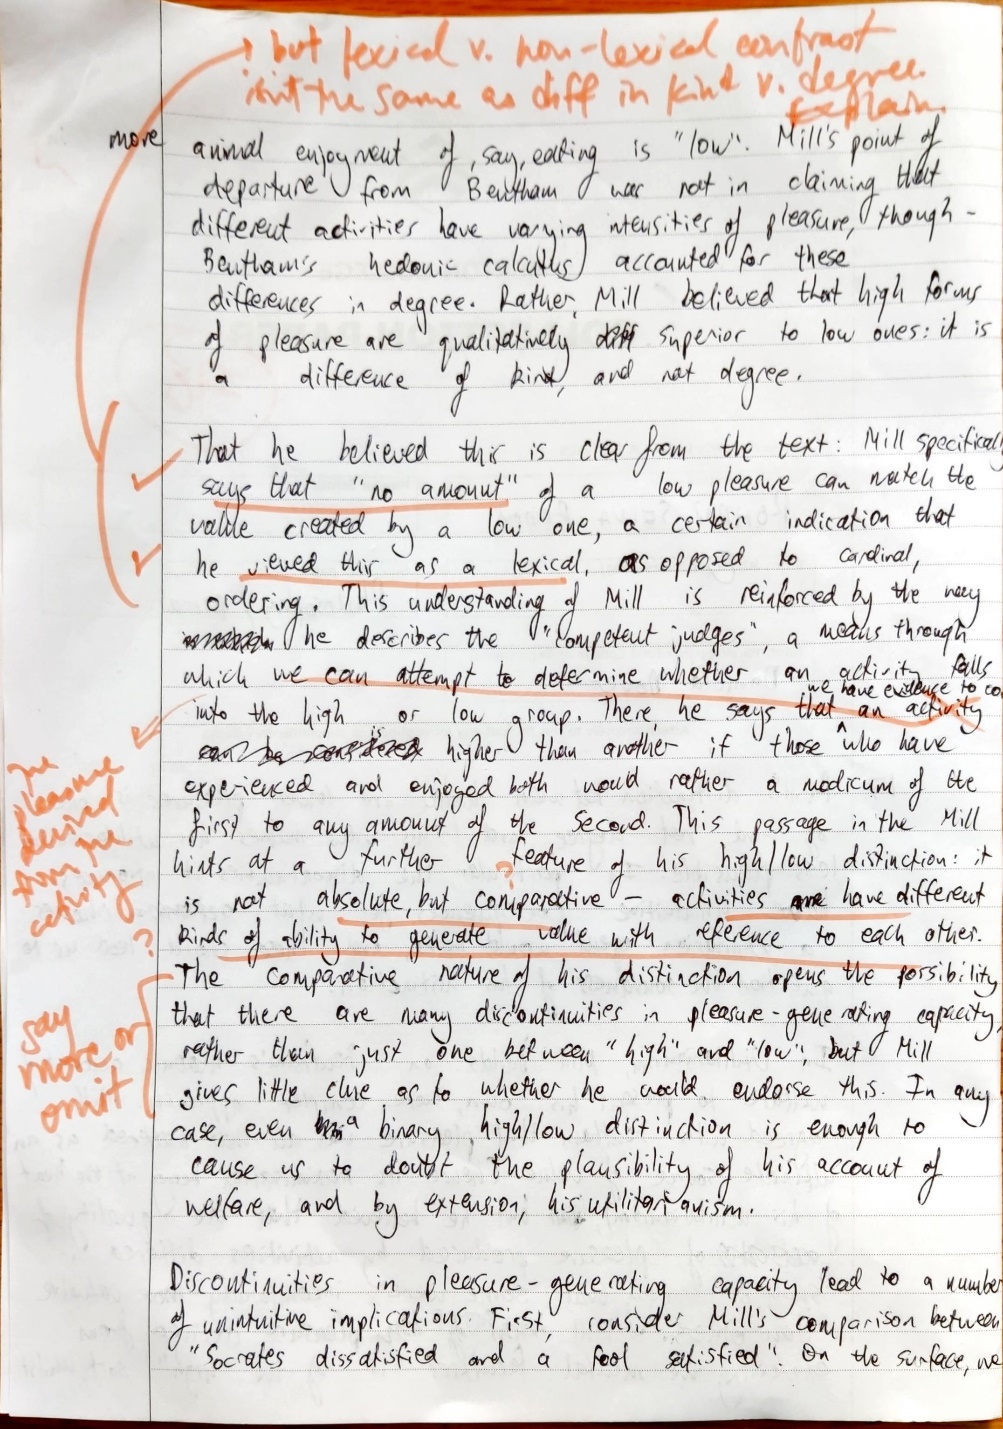 but lexical v. non-lexical contrast
isn't the same as diff in kind v. degree.
Explain.
more
animal enjoyment of, say, eating is "low". Mill's point of
departure from Bentham was not in claiming that
different activities have varying intensities of pleasure, though -
Bentham's hedonic calculus accounted for these
differences in degree. Rather, Mill believed that high forms
of pleasure are qualitatively superior to low ones: it is
a difference of kind, and not degree.
That he believed this is clear from the text: Mill specifically
says that "no amount" of a low pleasure can match the
value created by a low one, a certain indication that
he viewed this as a lexical, as opposed to cardinal,
ordering. This understanding of Mill is reinforced by the way
he describes the "competent judges", a means through
which we can attempt to determine whether an activity falls
we have evidence to co
into the high or low group. There, he says that an activity
is higher than another if those who have
experienced and enjoyed both would rather a modicum of the
first to any amount of the second. This passage in the Mill
hints at a further feature of his high/low distinction: it
?
is not absolute, but comparative - activities have different
kinds of ability to generate value with reference to each other.
The comparative nature of his distinction opens the possibility
that there are many discontinuities in pleasure-generating capacity,
rather than just one between "high" and "low", but Mill
gives little clue as to whether he would endorse this. In any
case, even a binary high/low distinction is enough to
cause us to doubt the plausibility of his account of
welfare, and by extension, his utilitarianism.
Discontinuities in pleasure-generating capacity lead to a number
of unintuitive implications. First, consider Mill's comparison between
"Socrates dissatisfied and a fool satisfied". On the surface, we
The
pleasure
derived
from the
activity
?
say
more or
omit